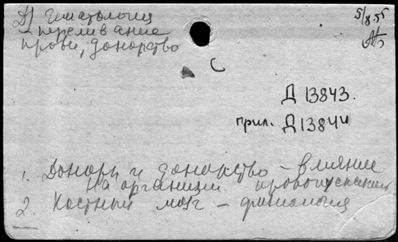 Д) Гематология
- переливание
крови, донорство
5/8 55
С
Д 13843.
прил. Д 13844
1. Доноры и донорство - влияние
на организм кровопускания
2. Костный мозг - физиология